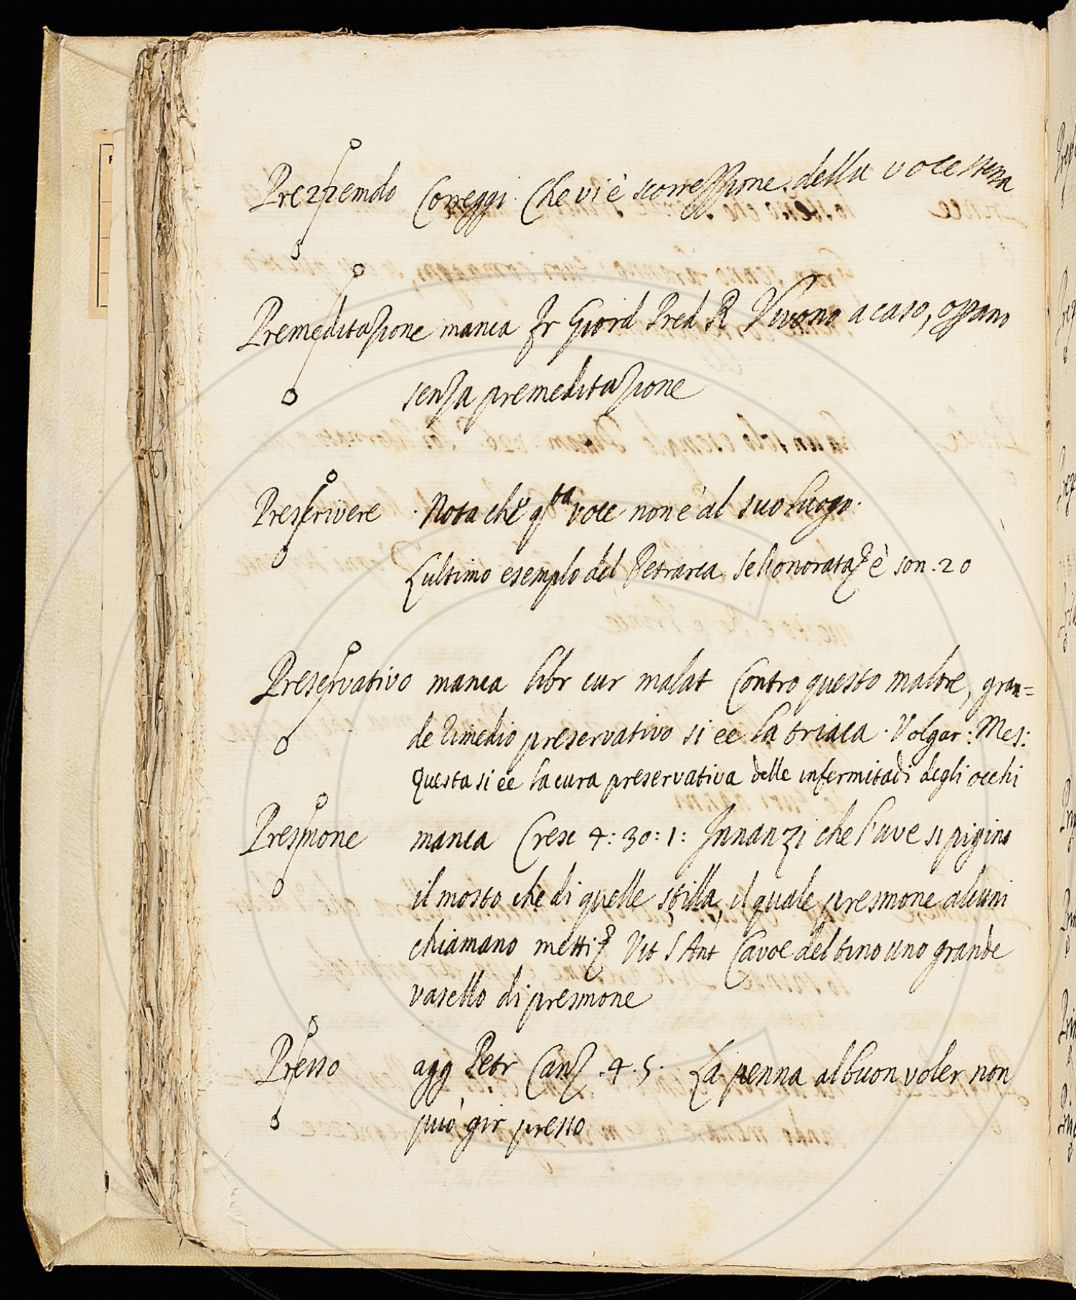 Prezzemolo Correggi. Che vi è scorressione della voce stessa
Premeditazione manca Fr Giord Pred R Vivono a caso, oprano
senza premeditazione
Prescrivere . Nota che qsta voce non è al suo luogo.
L'ultimo esempio del Petrarca se honorata è son. 20
Preservativo manca libr cur malat Contro questo malore, gran=
de rimedio preservativo si ee la triaca. Volgar: Mes:
Questa si ee la cura preservativa delle infermitadi degli occhi
Presmone manca Cresc 4: 30: 1: Innanzi che l'uve si pigino
il mosto che di quelle stilla, il quale presmone alcuni
chiamano metti Vit S Ant Cavoe del tino uno grande
vasello di presmone
Presso agg Petr Canz. 4. 5. La penna al buon voler non
può gir presso